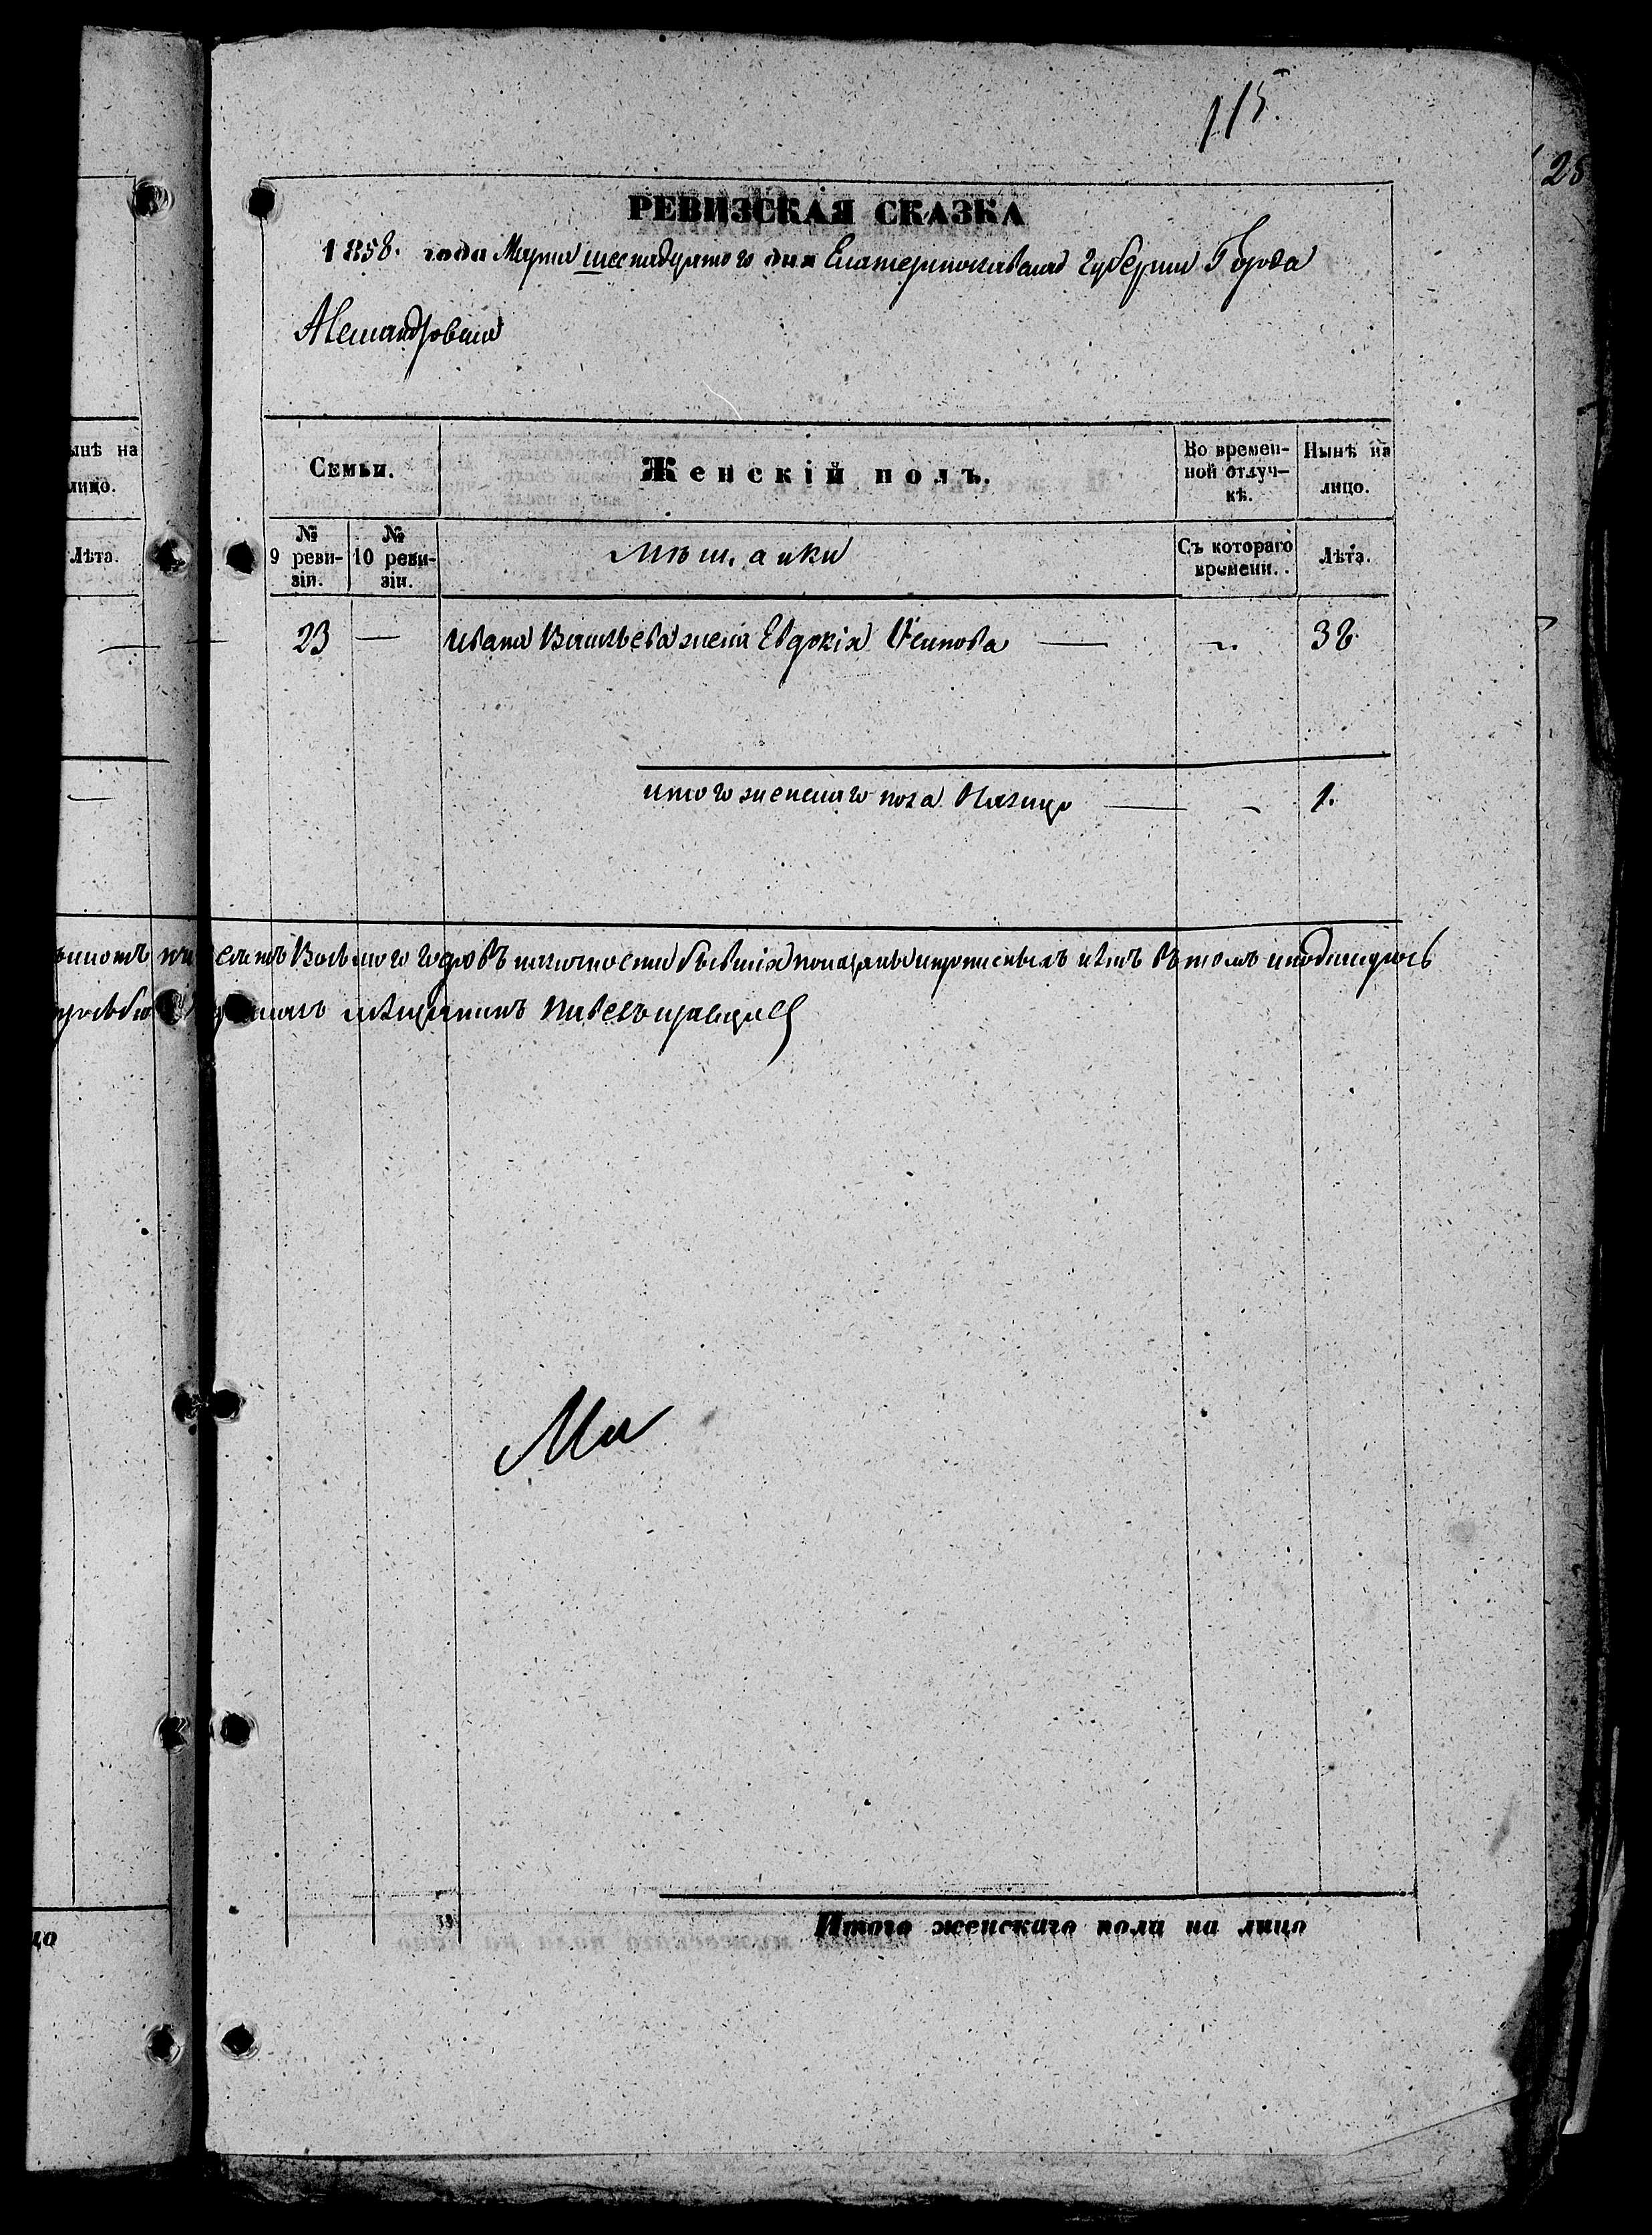 115.
28
РЕВИЗСКАЯ СКАЗКА
1858. года Марта шеснадцятого дня Екатеринославской губернии Города
Александровска
ынѣ на
лицо.
Лѣта.
Семьи.
Женскій полъ.
Во времен-
ной отлуч-
кѣ.
Нынѣ на
лицо.
№
9 реви-
зіи.
№
10 реви-
зіи.
Мѣщанки
Съ котораго
времени.
Лѣта.
23 — Ивана Васильева жена Евдокія Осипова — „ 38
итого женскаго пола Налицо — „ 1.
въ томъ и подпишусь
мѣщанинъ
Итого женскаго пола на лицо
цо